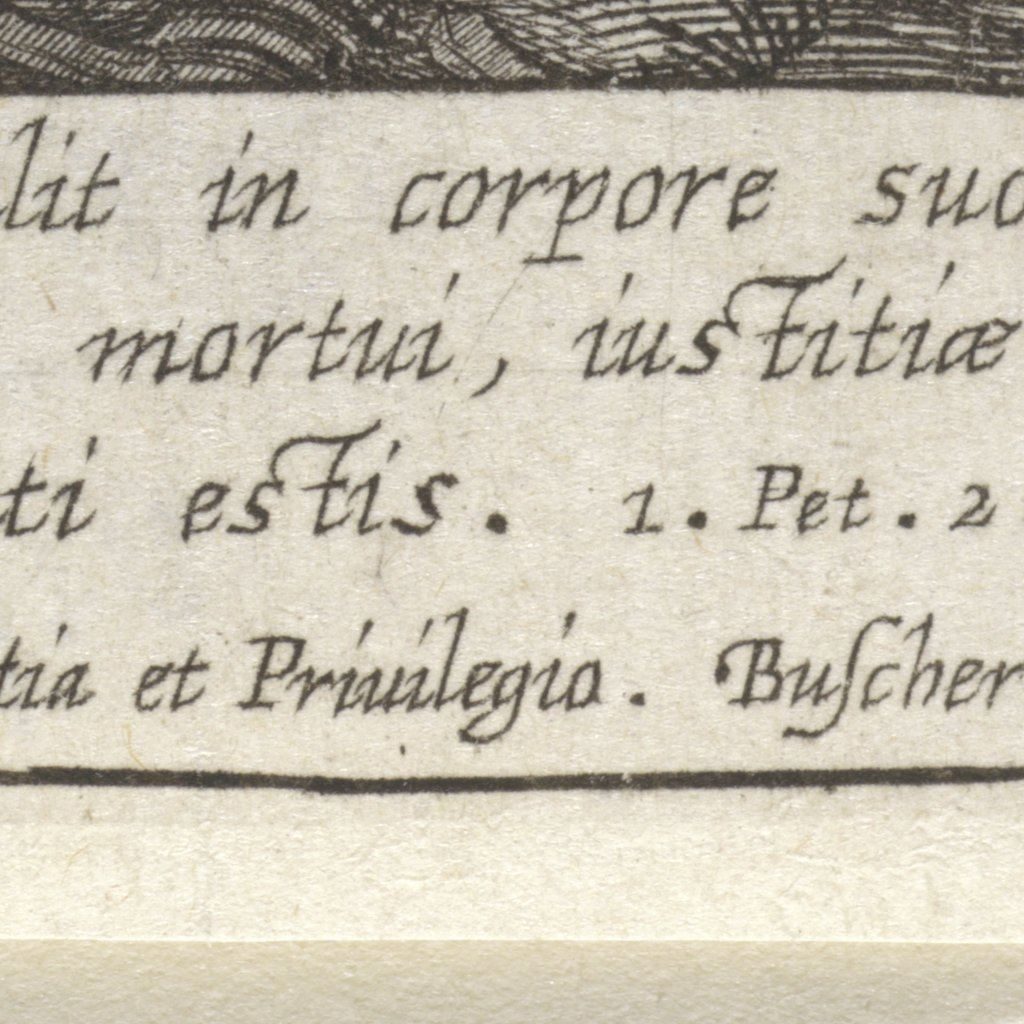 lit in corpore suo
mortui, iustitiæ
ti estis. 1. Pet. 2
tia et Priuilegio. Buſcher